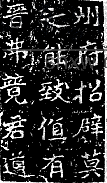 州府招辟莫
之能致值有
晋弗競君道